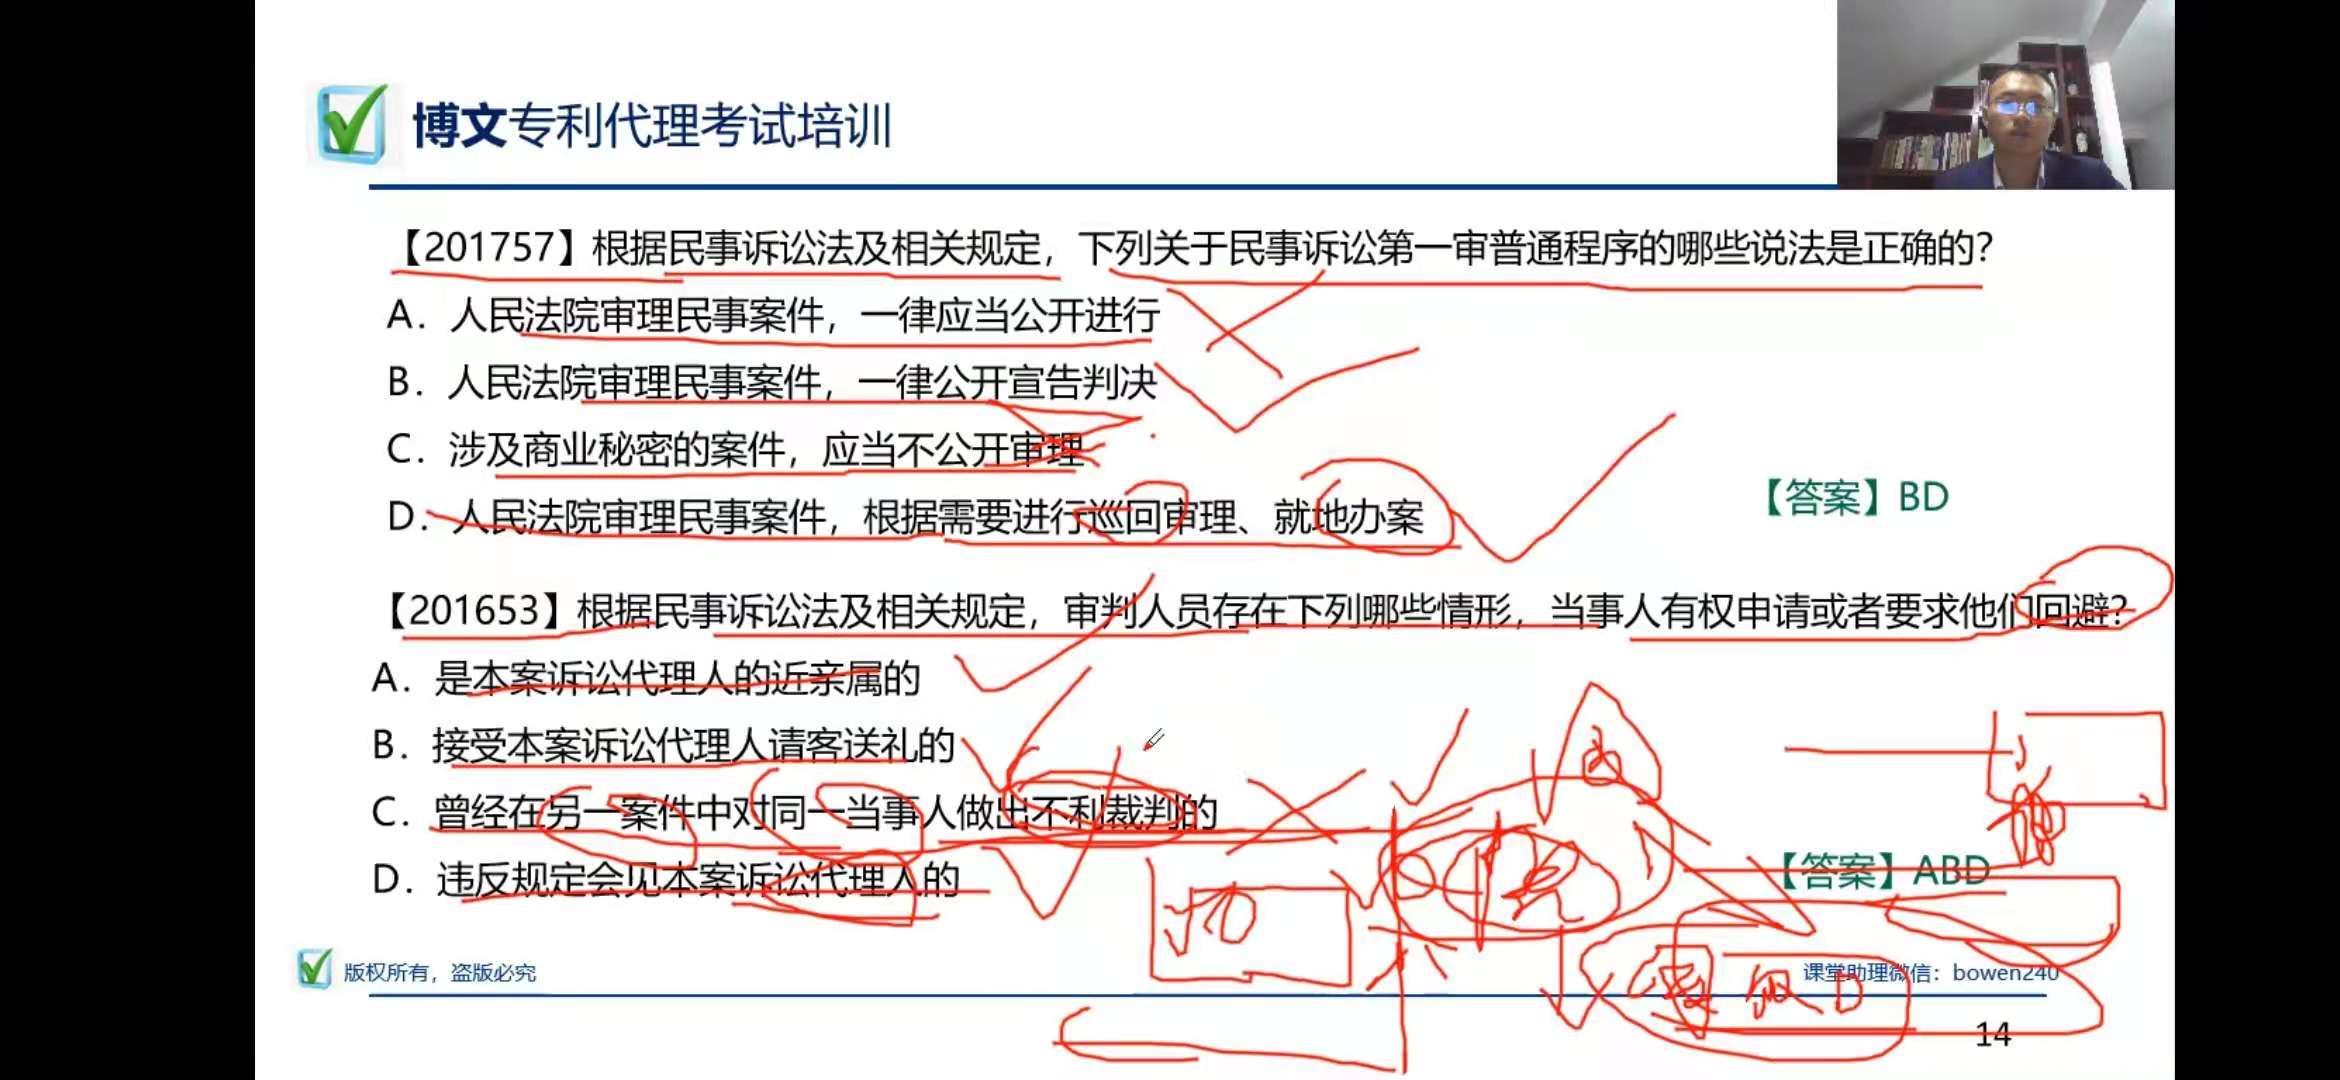 博文专利代理考试培训
【201757】根据民事诉讼法及相关规定，下列关于民事诉讼第一审普通程序的哪些说法是正确的？
A．人民法院审理民事案件，一律应当公开进行
B．人民法院审理民事案件，一律公开宣告判决
C．涉及商业秘密的案件，应当不公开审理
D．人民法院审理民事案件，根据需要进行巡回审理、就地办案
【答案】BD
【201653】根据民事诉讼法及相关规定，审判人员存在下列哪些情形，当事人有权申请或者要求他们回避？
A．是本案诉讼代理人的近亲属的
B．接受本案诉讼代理人请客送礼的
C．曾经在另一案件中对同一当事人做出不利裁判的
D．违反规定会见本案诉讼代理人的
【答案】ABD
版权所有，盗版必究
课堂助理微信：bowen240
14